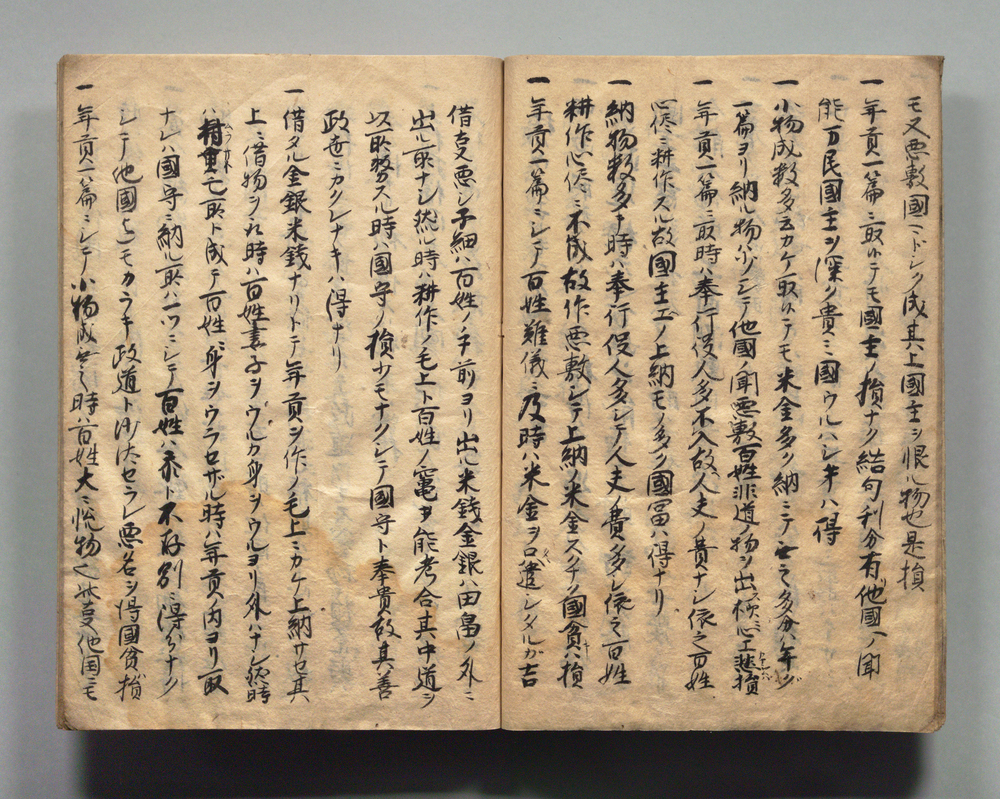 モ又悪敷國マドシク成其上國主ヲ恨ル物也是損
一年貢一篇ニ取ルテモ國主ノ損ナク結句利分有他國ノ聞
能万民國主ヲ深ク貴ミ國ウルハシキハ得
一小物成数多云カケ取ルテモ米金多ク納ミテ多分ハ年
一篇ヨリ納ル物少ノシテ他國ノ聞悪敷百姓非道物ヲ出
一年貢一篇ニ取時ハ奉行役人多不入故人夫ノ費ナシ依之百姓
心侭ニ耕作スル故國主エノ上納モノ多ク國冨ハ得ナリ
一納物数多キ時ハ奉行役人多シテ人夫ノ費多シ依之百姓
耕作心侭ニ不成故作悪敷シテ上納ノ米金スクナク國貧ハ損
一年貢一篇ニシテ百姓難儀ニ及時ハ米金ヲ口遣シタルガ吉
借方悪シ子細ハ百姓ノ手前ヨリ出ル米銭金銀ハ田畠ノ外ニ
出ル所ナシ然ル時ハ耕作ノ毛上ト百姓ノ竃ヲ能考合其中道ヲ
以取務スル時ハ國守ノ損少モナクシテ國守ト奉貴故其善
政世ニカクレナキハ得ナリ
一借タル金銀米銭ナリトテ年貢ヲ作ノ毛上ニカケ上納サセ其
上ニ借物ヲ取時ハ百姓妻子ヲウルカ身ヲウルヨリ外ハナシ
亡所ト成テ百姓ニ身ヲウラセザル時ハ年貢ノ内ヨリ取
ナレハ國守ニ納ル所ハ一ツニシテ百姓ハ忝ト不存別ニ得分ナク
シテ他國迠モカラキ政道ト沙汰セラレ悪名ヲ得國貧損
一年貢一篇ニシテ小物成無之時ハ百姓大ニ悦物